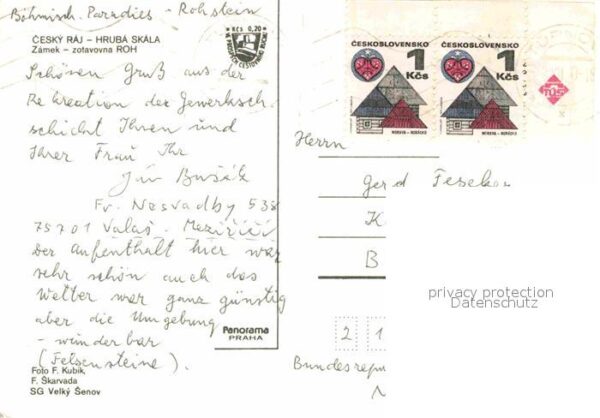 Böhmisch. Paradies - Rohstein
ČESKÝ RÁJ – HRUBÁ SKÁLA
Zámek – zotavovna ROH
KČS 0,20
Schönen Gruß aus der
Rekreation der Gewerksch.
schickt Ihnen und
Ihrer Frau Ihr
Jiří Bušák
Fr. Nesvadby 538
75701 Valaš. Meziříčí
Der Aufenthalt hier war
sehr schön auch das
Wetter war ganz günstig
aber die Umgebung
- wunderbar
(Felsensteine).
Foto F. Kubík,
F. Škarvada
SG Velký Šenov
Panorama
PRAHA
ČESKOSLOVENSKO
1
Kčs
MORAVA - HORÁCKO
ČESKOSLOVENSKO
1
Kčs
MORAVA - HORÁCKO
Herrn
Gerd
K
B
privacy protection
Datenschutz
2 1
Bundesrepu